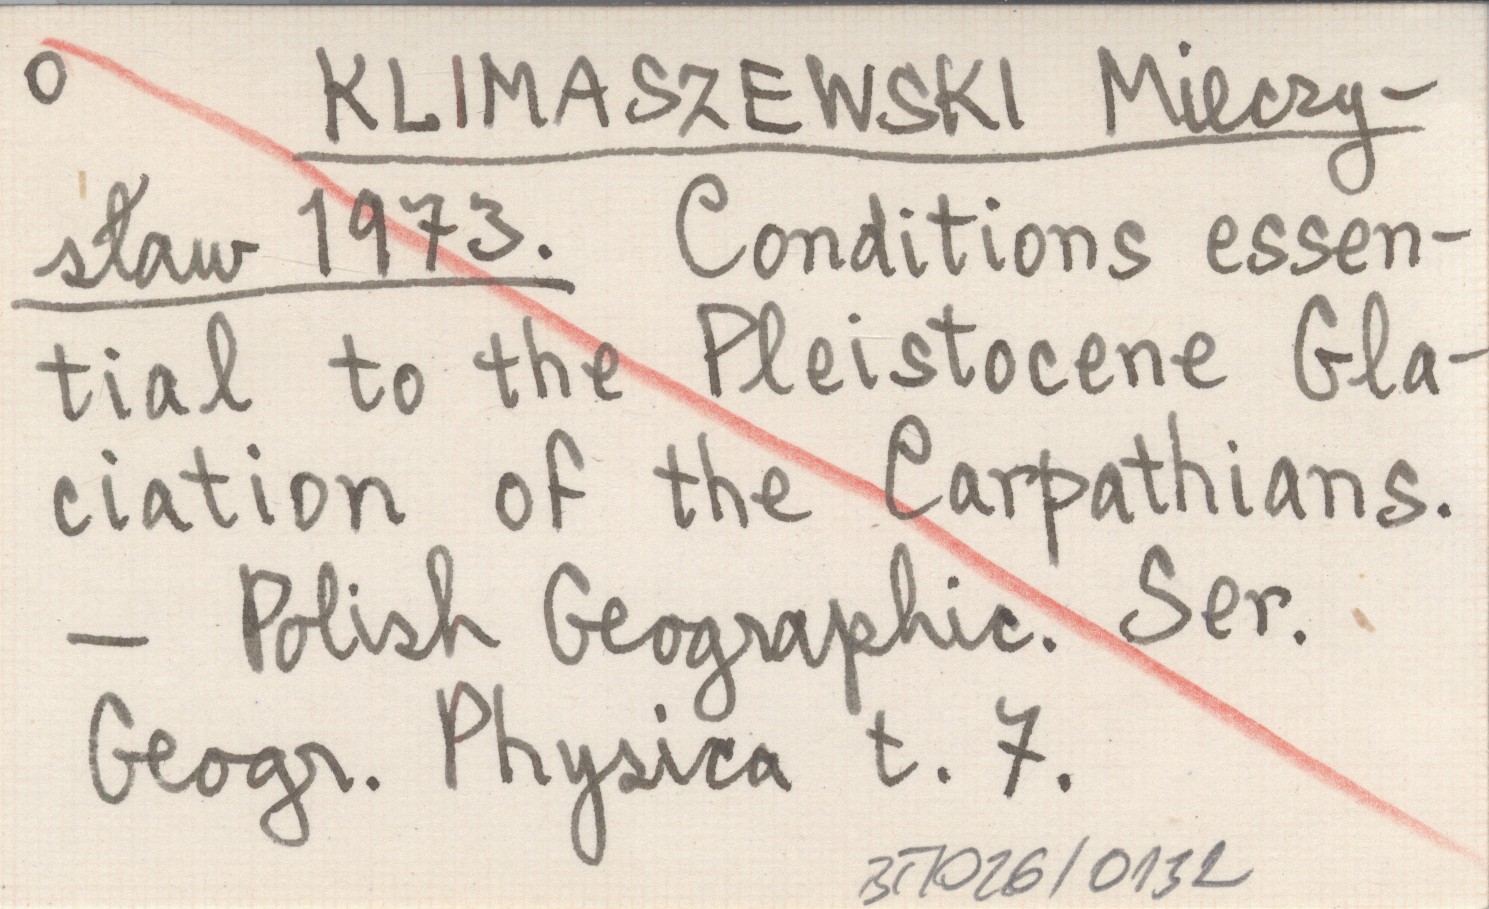 O KLIMASZEWSKI Mieczy-
sław 1973. Conditions essen-
tial to the Pleistocene Gla-
ciation of the Carpathians.
— Polish Geographic. Ser.
Geogr. Physica t. 7.
/0132